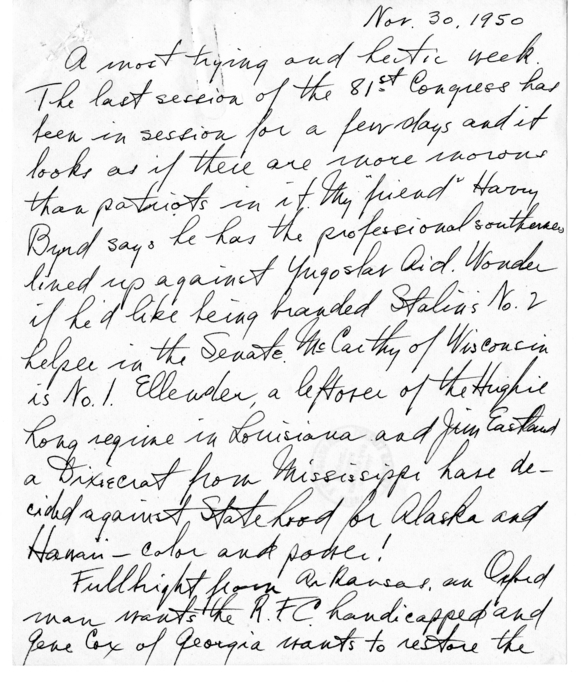 Nov. 30, 1950
A most trying and hectic week.
The last session of the 81st Congress has
been in session for a few days and it
looks as if there are more morons
than patriots in it. My "friend" Harry
Byrd says he has the professional southerners
lined up against Yugoslav Aid. Wonder
if he'd like being branded Stalin's No. 2
helper in the Senate. McCarthy of Wisconsin
is No. 1. Ellender, a leftover of the Hughie
Long regime in Louisiana and Jim Eastland
a Dixiecrat from Mississippi have de-
cided against Statehood for Alaska and
Hawaii – color and power!
Fullbright from Arkansas, an Oxford
man wants the R.F.C. handicapped and
Gene Cox of Georgia wants to restore the